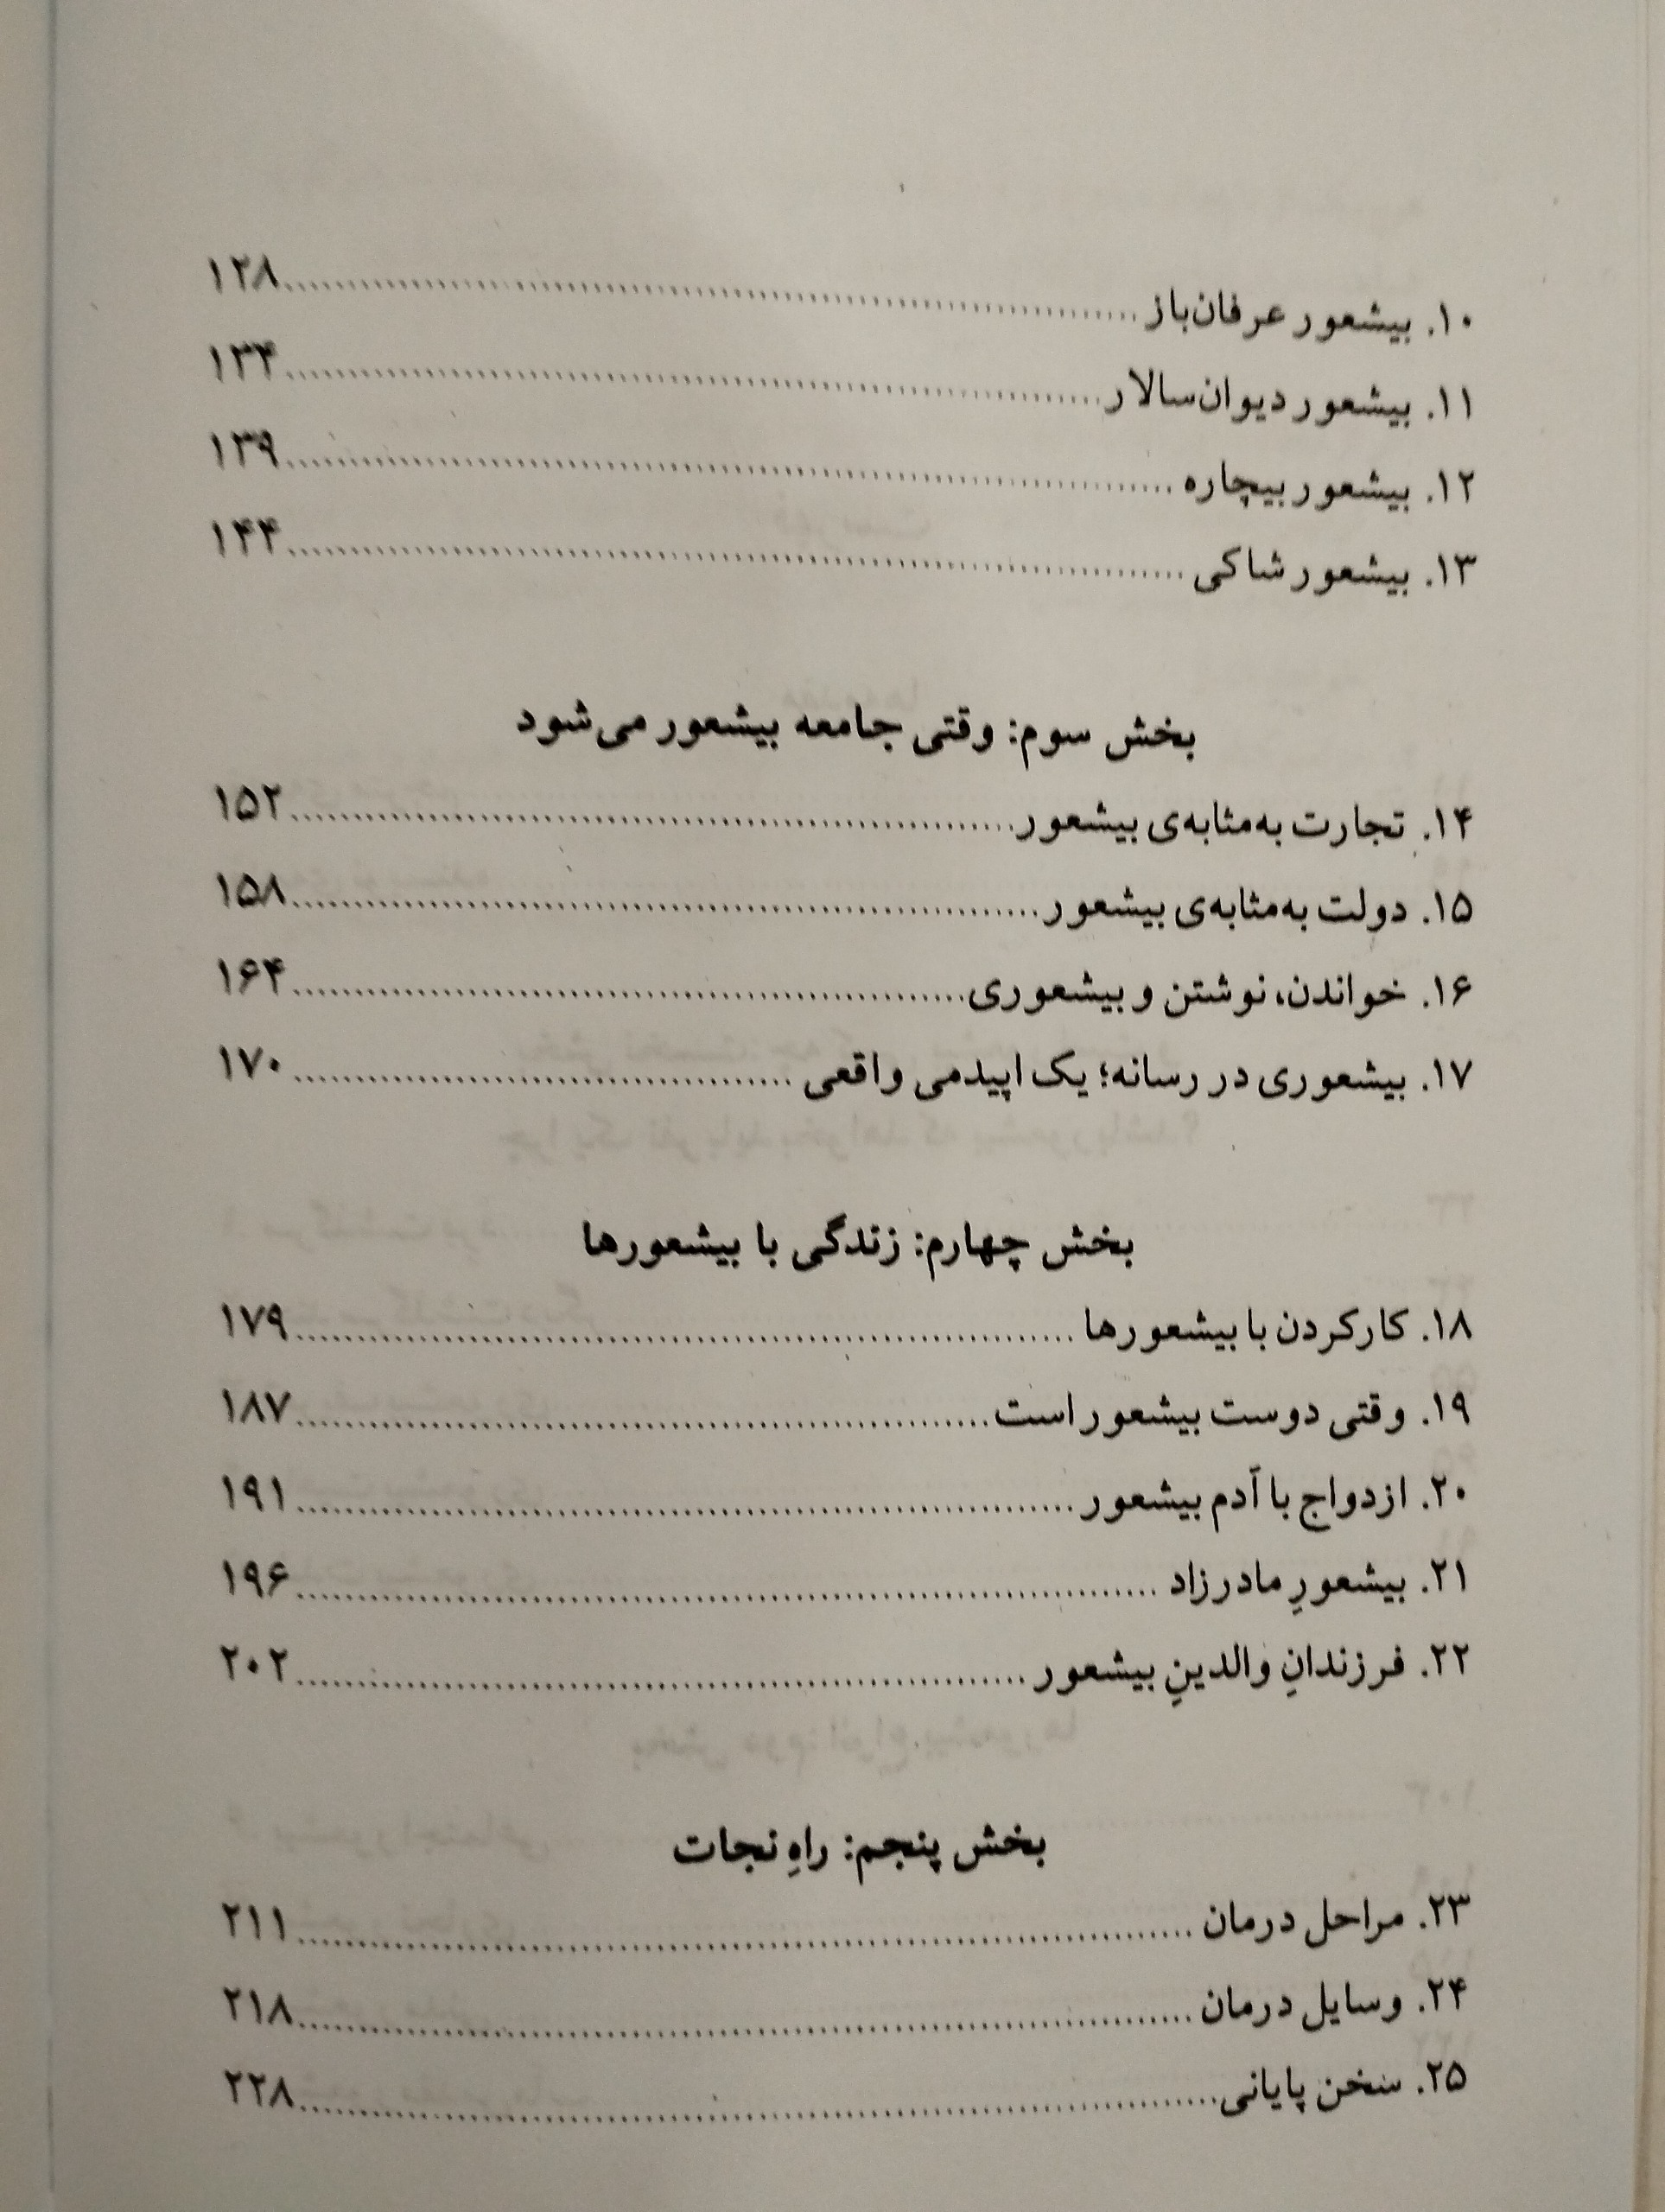 ۱۰. بیشعور عرفان‌باز ........ ۱۲۸
۱۱. بیشعور دیوان‌سالار ........ ۱۳۴
۱۲. بیشعور بیچاره ........ ۱۳۹
۱۳. بیشعور شاکی ........ ۱۴۴
بخش سوم: وقتی جامعه بیشعور می‌شود
۱۴. تجارت به‌مثابه‌ی بیشعور ........ ۱۵۲
۱۵. دولت به‌مثابه‌ی بیشعور ........ ۱۵۸
۱۶. خواندن، نوشتن و بیشعوری ........ ۱۶۴
۱۷. بیشعوری در رسانه؛ یک اپیدمی واقعی ........ ۱۷۰
بخش چهارم: زندگی با بیشعورها
۱۸. کارکردن با بیشعورها ........ ۱۷۹
۱۹. وقتی دوست بیشعور است ........ ۱۸۷
۲۰. ازدواج با آدم بیشعور ........ ۱۹۱
۲۱. بیشعورِ مادرزاد ........ ۱۹۶
۲۲. فرزندانِ والدینِ بیشعور ........ ۲۰۲
بخش پنجم: راهِ نجات
۲۳. مراحل درمان ........ ۲۱۱
۲۴. وسایل درمان ........ ۲۱۸
۲۵. سخن پایانی ........ ۲۲۸